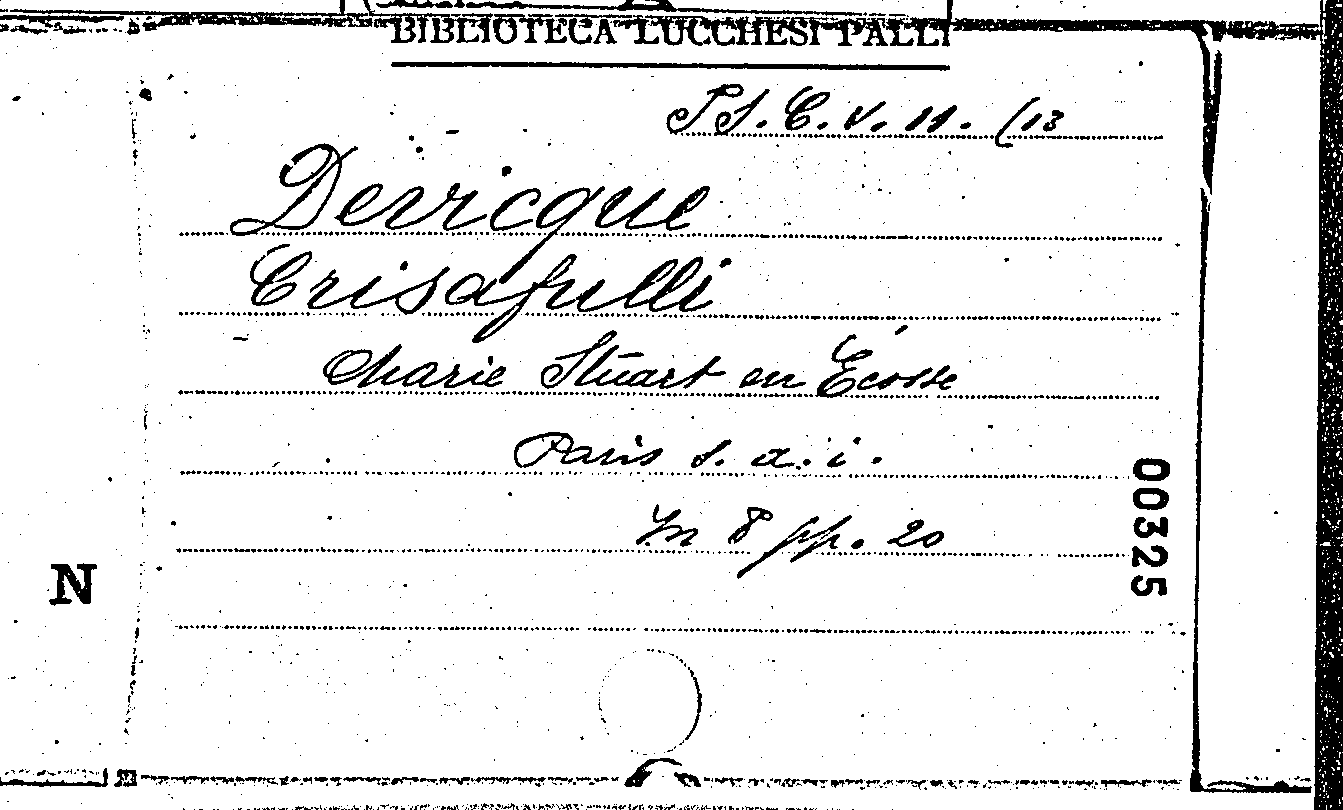 BIBLIOTECA LUCCHESI PALLI
Devicque
Crisafulli
Marie Stuart en Écosse
Paris s. a. i.
In 8 pp. 20
00325
N